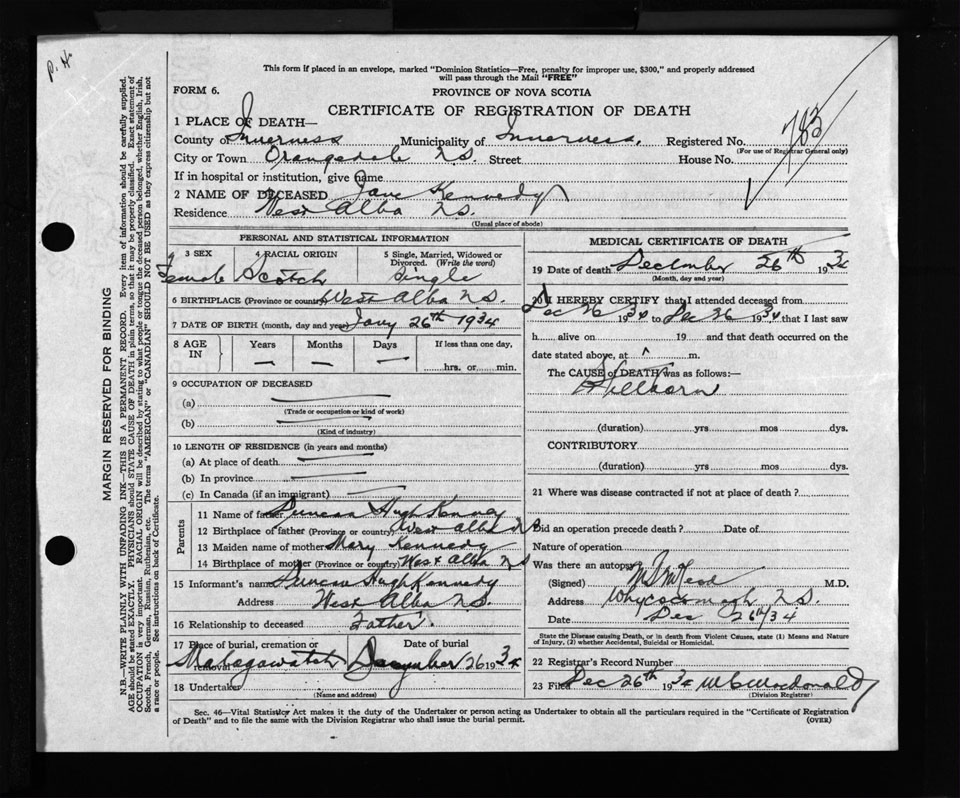 P. H.
This form if placed in an envelope, marked "Dominion Statistics—Free, penalty for improper use, $300," and properly addressed
will pass through the Mail "FREE"
FORM 6.
PROVINCE OF NOVA SCOTIA
CERTIFICATE OF REGISTRATION OF DEATH
783
1 PLACE OF DEATH—
County of Inverness Municipality of Inverness, Registered No.
(For use of Registrar General only)
City or Town Orangedale N.S. Street House No.
If in hospital or institution, give name
2 NAME OF DECEASED Jane Kennedy
Residence West Alba N.S.
(Usual place of abode)
PERSONAL AND STATISTICAL INFORMATION
3 SEX 4 RACIAL ORIGIN 5 Single, Married, Widowed or
Divorced. (Write the word)
Female Scotch Single
6 BIRTHPLACE (Province or country) West Alba N.S.
7 DATE OF BIRTH (month, day and year) 26th 1934
8 AGE IN Years Months Days If less than one day,
— — — hrs. or min.
9 OCCUPATION OF DECEASED
(a)
(Trade or occupation or kind of work)
(b)
(Kind of industry)
10 LENGTH OF RESIDENCE (in years and months)
(a) At place of death
(b) In province
(c) In Canada (if an immigrant)
Parents
11 Name of father Duncan Hugh Kennedy
12 Birthplace of father (Province or country) West Alba N S
13 Maiden name of mother Mary Kennedy
14 Birthplace of mother (Province or country) West Alba N S
15 Informant's name Duncan Hugh Kennedy
Address West Alba N.S.
16 Relationship to deceased Father.
17 Place of burial, cremation or removal Date of burial
Malagawatch December 26 1934
18 Undertaker
(Name and address)
MEDICAL CERTIFICATE OF DEATH
19 Date of death December 26th 1934
(Month, day and year)
20 I HEREBY CERTIFY that I attended deceased from
Dec 26 1934 to Dec 26 1934 that I last saw
h alive on 19 and that death occurred on the
date stated above, at m.
The CAUSE of DEATH was as follows:—
Stillborn
(duration) yrs mos dys.
CONTRIBUTORY
(duration) yrs mos dys.
21 Where was disease contracted if not at place of death?
Did an operation precede death? Date of
Nature of operation
Was there an autopsy
(Signed) McLeod M.D.
Address Whycocomagh N.S.
Date Dec 26th/34
State the Disease causing Death, or in death from Violent Causes, state (1) Means and Nature
of Injury, (2) whether Accidental, Suicidal or Homicidal.
22 Registrar's Record Number
23 Filed Dec 26th 1934 Macdonald
(Division Registrar)
Sec. 46—Vital Statistics Act makes it the duty of the Undertaker or person acting as Undertaker to obtain all the particulars required in the "Certificate of Registration
of Death" and to file the same with the Division Registrar who shall issue the burial permit.
(OVER)
MARGIN RESERVED FOR BINDING
N.B.—WRITE PLAINLY WITH UNFADING INK—THIS IS A PERMANENT RECORD. Every item of information should be carefully supplied.
AGE should be stated EXACTLY. PHYSICIANS should STATE CAUSE OF DEATH in plain terms, so that it may be properly classified. Exact statement of
OCCUPATION is very important. RACIAL ORIGIN will be described by stating to what people or tongue the deceased person belonged, whether English, Irish,
Scotch, French, German, Russian, Ruthenian, etc. The terms "AMERICAN" or "CANADIAN" SHOULD NOT BE USED as they express citizenship but not
a race or people. See instructions on back of Certificate.